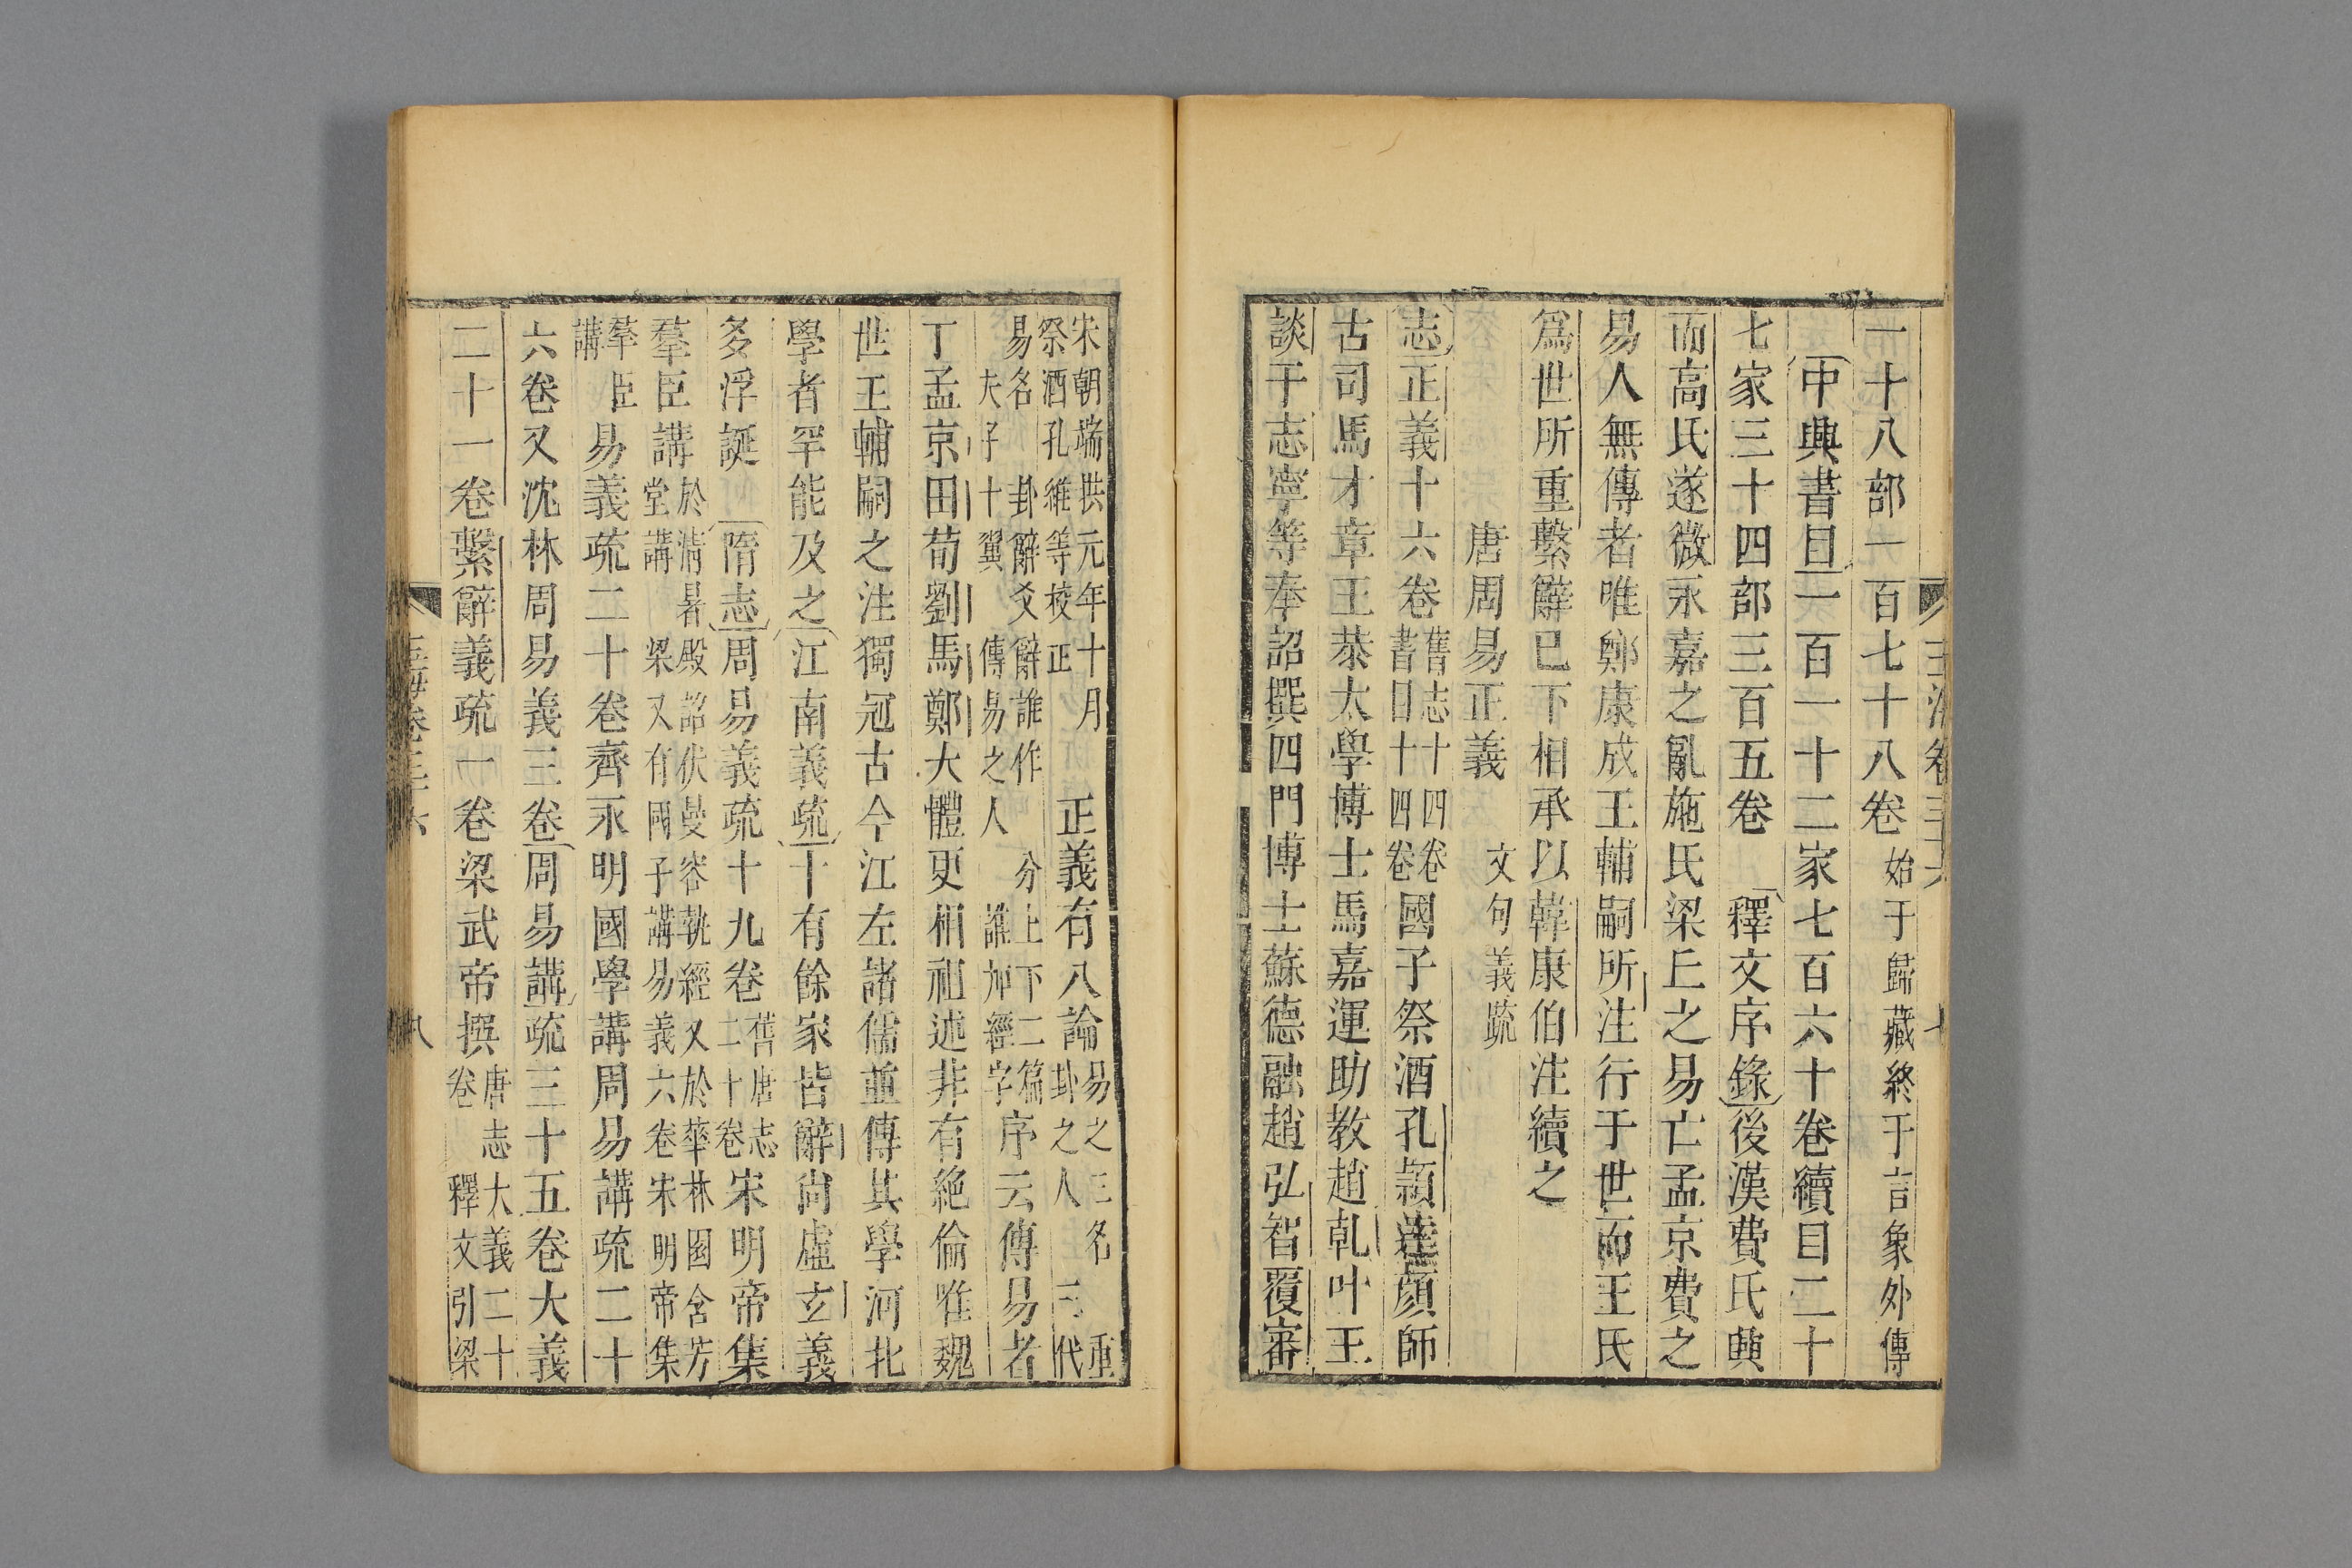 玉海卷三十六 七
一十八部一百七十八卷始于歸藏終于言象外傳
中興書目一百一十二家七百六十卷續目二十
七家三十四部三百五卷 釋文序錄後漢費氏興
而高氏遂微永嘉之亂施氏梁丘之易亡孟京費之
易人無傳者唯鄭康成王輔嗣所注行于世而王氏
爲世所重繫辭已下相承以韓康伯注續之
唐周易正義 文句義疏
志正義十六卷舊志十四卷書目十四卷國子祭酒孔穎達顏師
古司馬才章王恭太學博士馬嘉運助教趙乾叶王
談于志寧等奉詔撰四門博士蘇德融趙弘智覆審
宋朝端拱元年十月
祭酒孔維等校正
正義有八論
易之三名 重
卦之人 三代
易名 卦辭爻辭誰作 分上下二篇
夫子十翼 傳易之人 誰加經字
序云傳易者
丁孟京田荀劉馬鄭大體更相祖述非有絶倫唯魏
世王輔嗣之注獨冠古今江左諸儒並傳其學河北
學者罕能及之江南義疏十有餘家皆辭尚虛玄義
多浮誕 隋志周易義疏十九卷舊唐志二十卷宋明帝集
羣臣講
於清暑殿詔伏曼容執經又於華林園含芳
堂講 梁又有國子講易義六卷宋明帝集
羣臣
講
易義疏二十卷齊永明國學講周易講疏二十
六卷又沈林周易義三卷周易講疏三十五卷大義
二十一卷繫辭義疏一卷梁武帝撰
唐志大義二十
卷 釋文引梁
玉海卷三十六 八